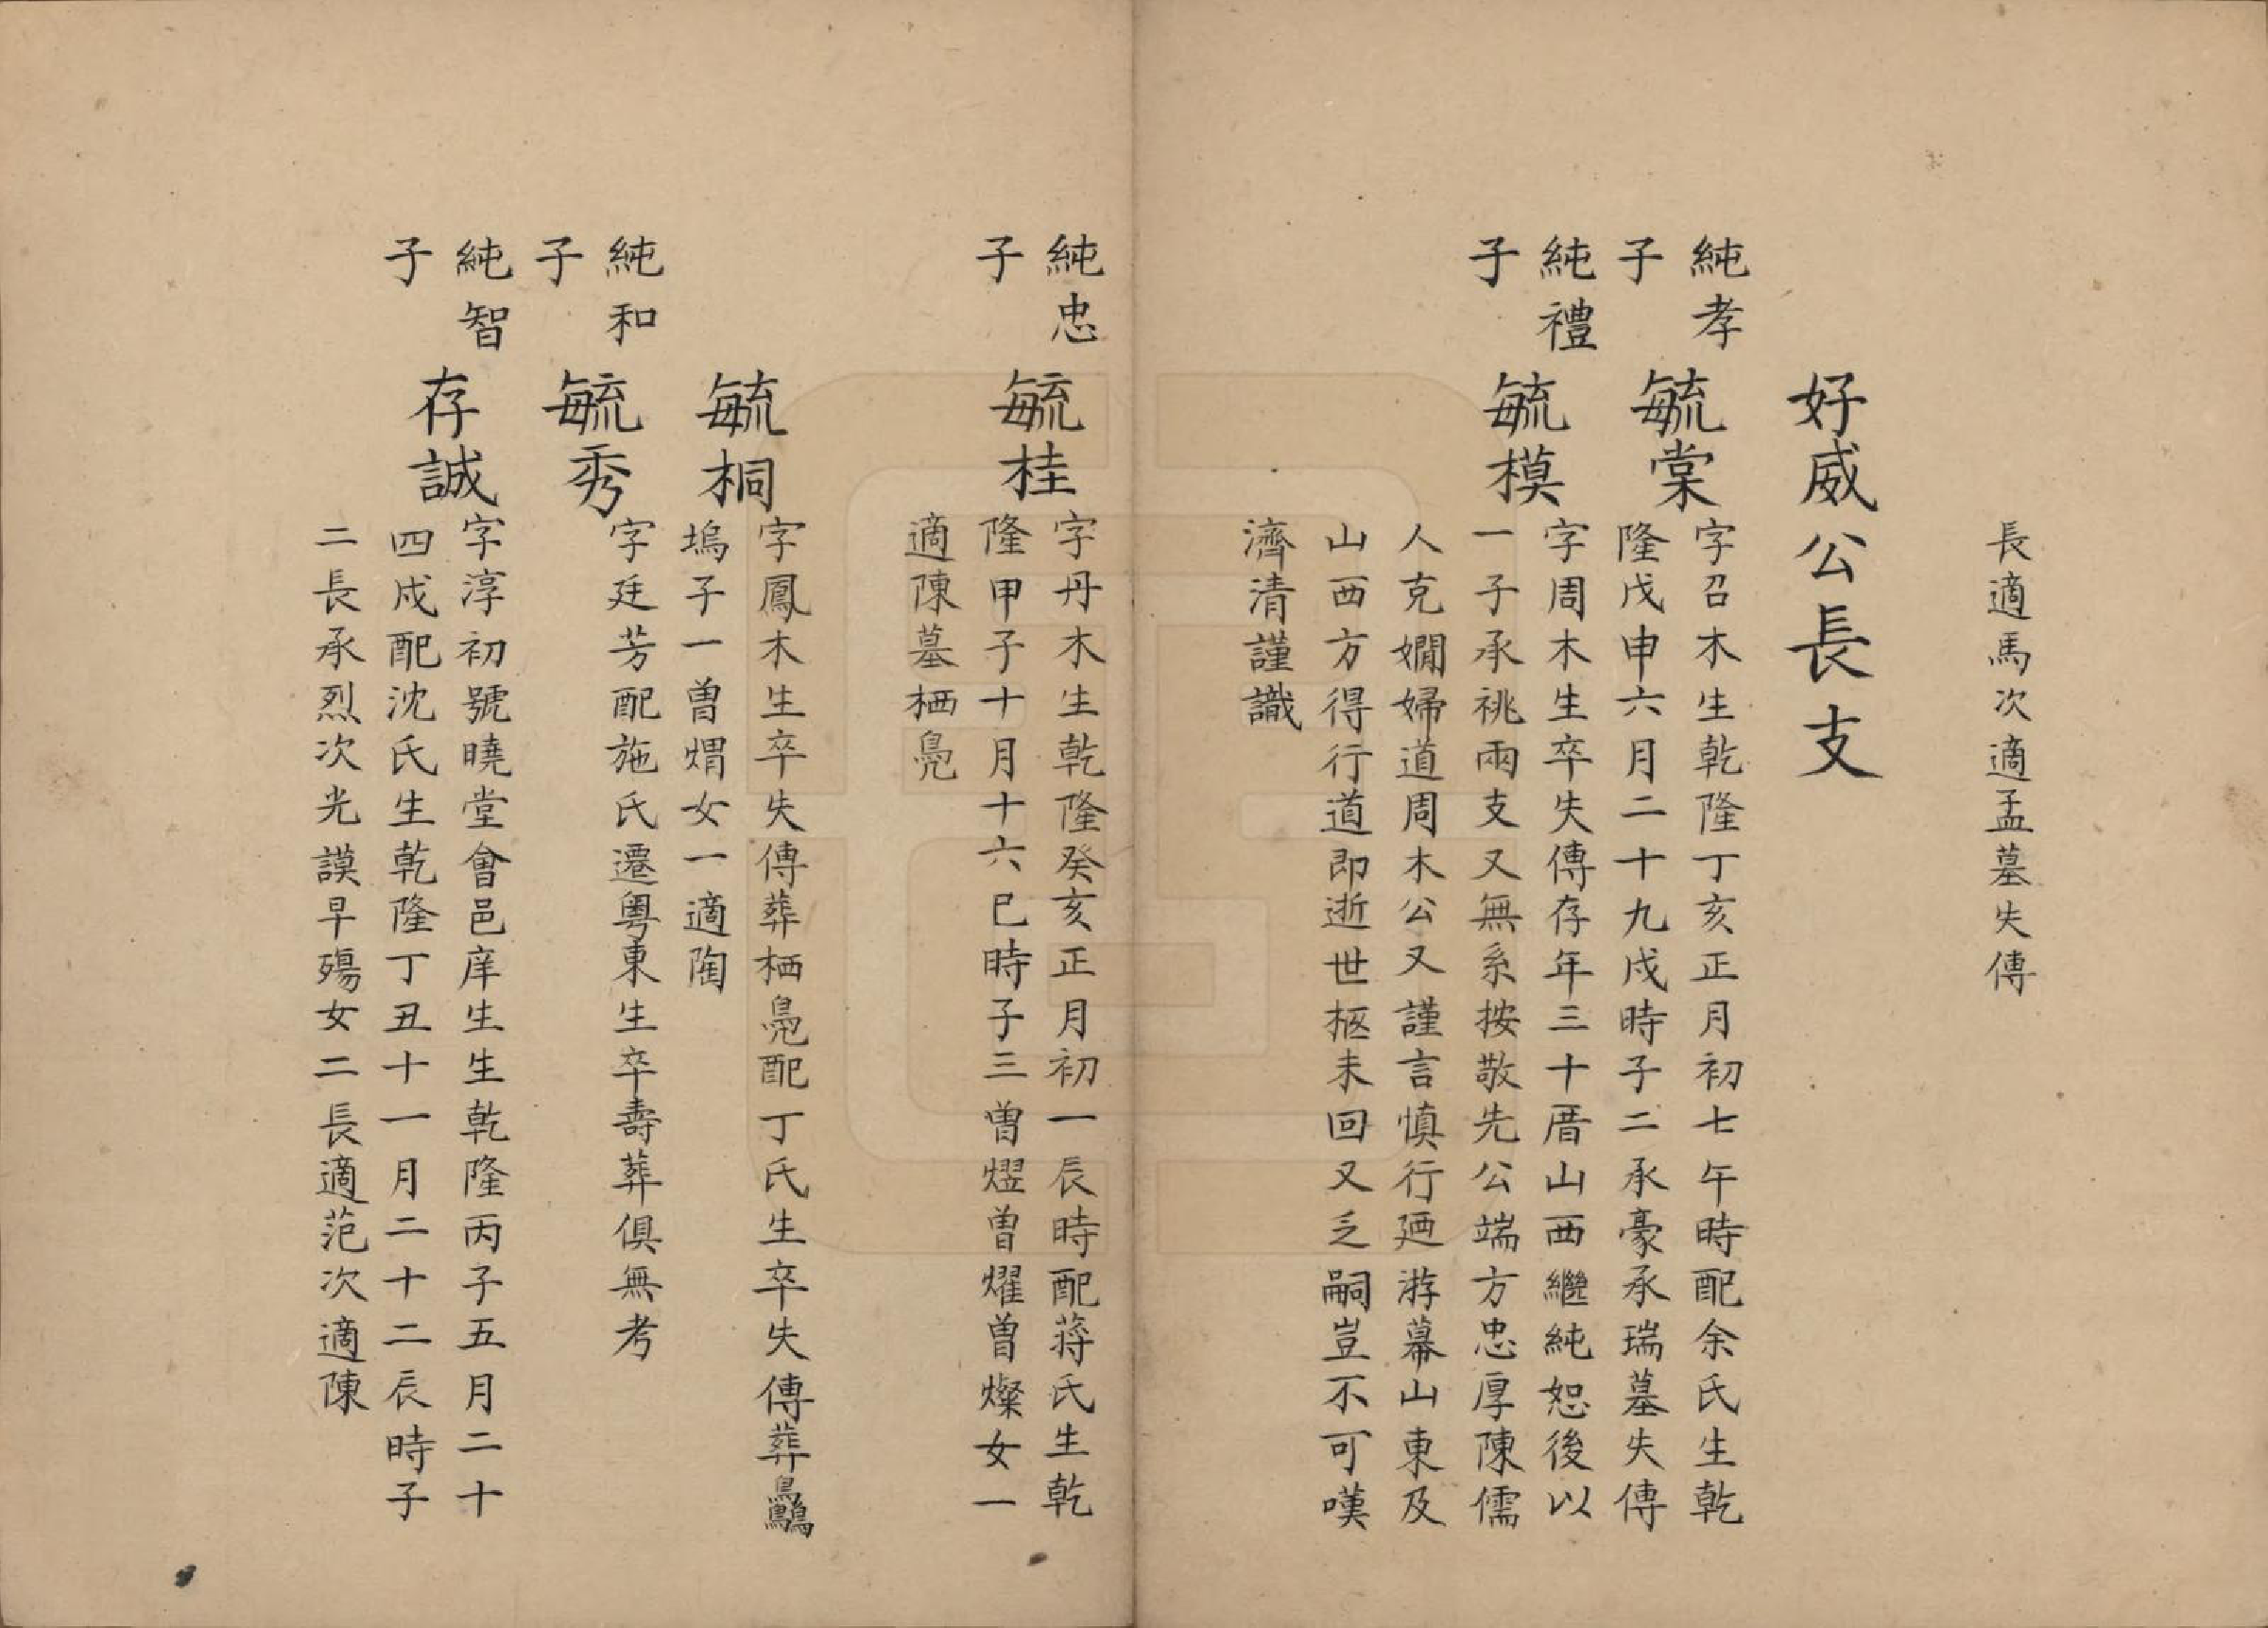 長適馬次適孟墓失傳
好威公長支
純孝
子
毓棠
字召木生乾隆丁亥正月初七午時配余氏生乾
隆戊申六月二十九戌時子二承豪承瑞墓失傳
純禮
子
毓模
字周木生卒失傳存年三十厝山西繼純恕後以
一子承祧兩支又無系按敬先公端方忠厚陳儒
人克嫺婦道周木公又謹言慎行廼游幕山東及
山西方得行道即逝世柩未回又乏嗣豈不可嘆
濟清謹識
純忠
子
毓桂
字丹木生乾隆癸亥正月初一辰時配蔣氏生乾
隆甲子十月十六巳時子三曾熤曾燿曾燦女一
適陳墓栖鳧
毓桐
字鳳木生卒失傳葬栖鳧配丁氏生卒失傳葬
塢子一曾煟女一適陶
純和
子
毓秀
字廷芳配施氏遷粤東生卒壽葬俱無考
純智
子
存誠
字淳初號曉堂會邑庠生生乾隆丙子五月二十
四戌配沈氏生乾隆丁丑十一月二十二辰時子
二長承烈次光謨早殤女二長適范次適陳